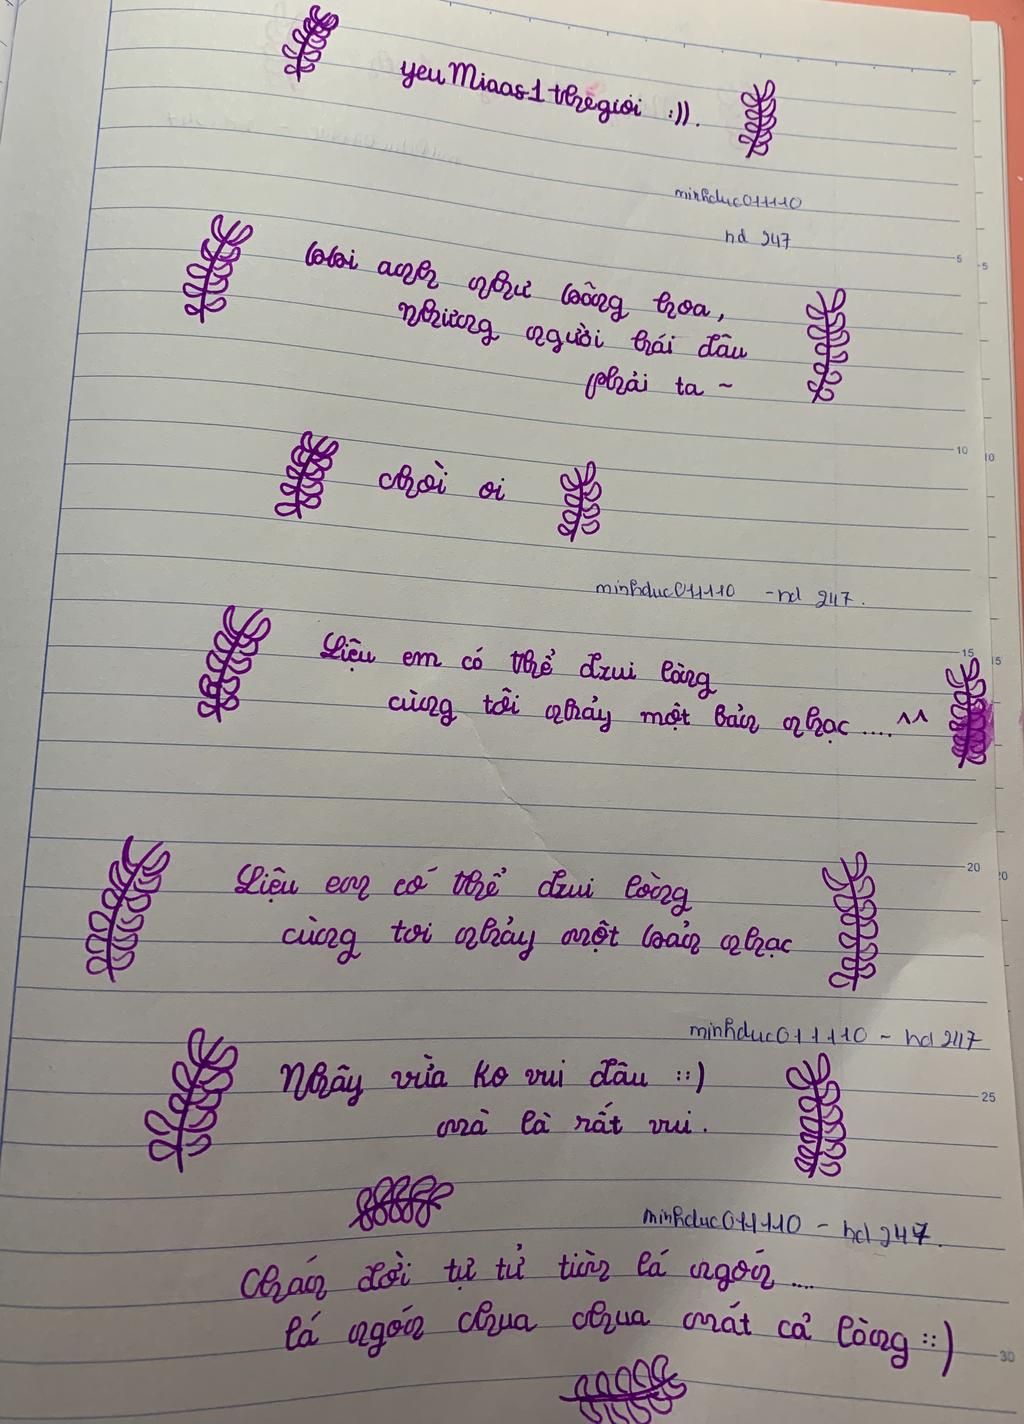 yeu Miaas1 thế giới :)).
minhduc011110
hd 247
bởi anh như bông hoa,
nhưng người hái đâu
phải ta ~
chời oi
minhduc011110 - hd 247.
Liệu em có thể dzui lòng
cùng tôi nhảy một bản nhạc .... ^^
Liệu em có thể dzui lòng
cùng tơi nhảy một bản nhạc
minhduc011110 - hd 247
Nhây vừa ko vui đâu ::)
mà là rất vui.
minhduc011110 - hd 247.
Chán đời tự tử tìn lá ngón ....
lá ngón chua chua mát cả lòng ::)
5
5
10
10
15
15
20
20
25
30